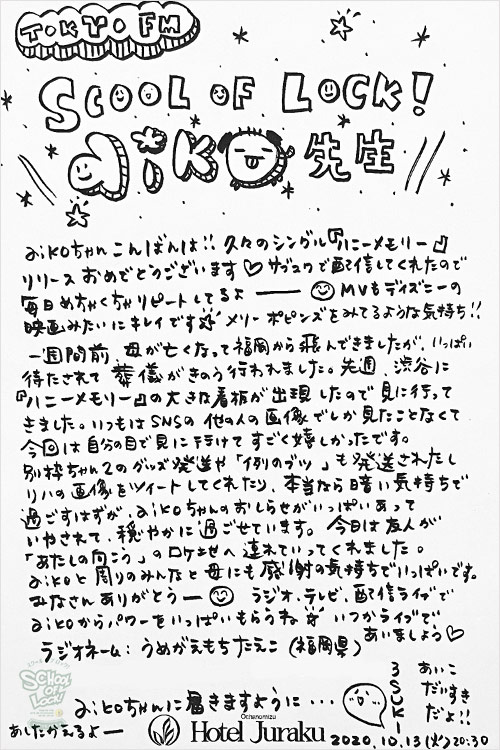 TOKYO FM
SCOOL OF LOCK!
aiko 先生
aikoちゃんこんばんは!! 久々のシングル『ハニーメモリー』
リリースおめでとうございます♡ サブスクで配信してくれたので
毎日めちゃくちゃリピートしてるよー MVもディズニーの
映画みたいにキレイです メリーポピンズをみてるような気持ち!!
一週間前、母が亡くなって福岡から飛んできましたが、いっぱい
待たされて葬儀がきのう行われました。先週、渋谷に
『ハニーメモリー』の大きな看板が出現したので見に行って
きました。いつもはSNSの他の人の画像でしか見たことなくて
今回は自分の目で見に行けてすごく嬉しかったです。
別枠ちゃん2のグッズ発送や「例のブツ」も発送されたし
リハの画像をツイートしてくれたり、本当なら暗い気持ちで
過ごすはずが、aikoちゃんのおしらせがいっぱいあって
いやされて、穏やかに過ごせています。今日は友人が
「あたしの向こう」のロケ地へ連れていってくれました。
aikoと周りのみんなと母にも感謝の気持ちでいっぱいです。
みなさんありがとうー ラジオ、テレビ、配信ライブで
aikoからパワーをいっぱいもらうね☆ いつかライブで
あいましょう♡
ラジオネーム: うめがえもちたえこ (福岡県)
SCHOOL OF LOCK!
aikoちゃんに届きますように・・・
あいこ
だいすき
だよ!!
3SUKI
あしたかえるよー
Ochanomizu
Hotel Juraku
2020.10.13(火)20:30